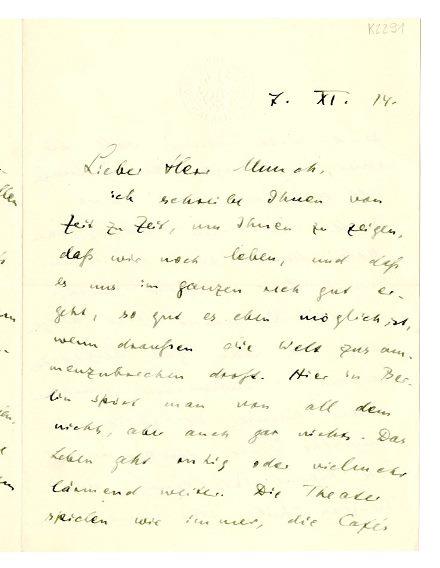 K2291
7. XI. 14.
Lieber Herr Munch,
ich schreibe Ihnen von
Zeit zu Zeit, um Ihnen zu zeigen,
daß wir noch leben, und daß
es uns im ganzen recht gut er-
geht, so gut es eben möglich ist,
wenn draußen die Welt zusam-
menzubrechen droht. Hier in Ber-
lin spürt man von all dem
nichts, aber auch gar nichts. Das
Leben geht ruhig oder vielmehr
lärmend weiter. Die Theater
spielen wie immer, die Cafés